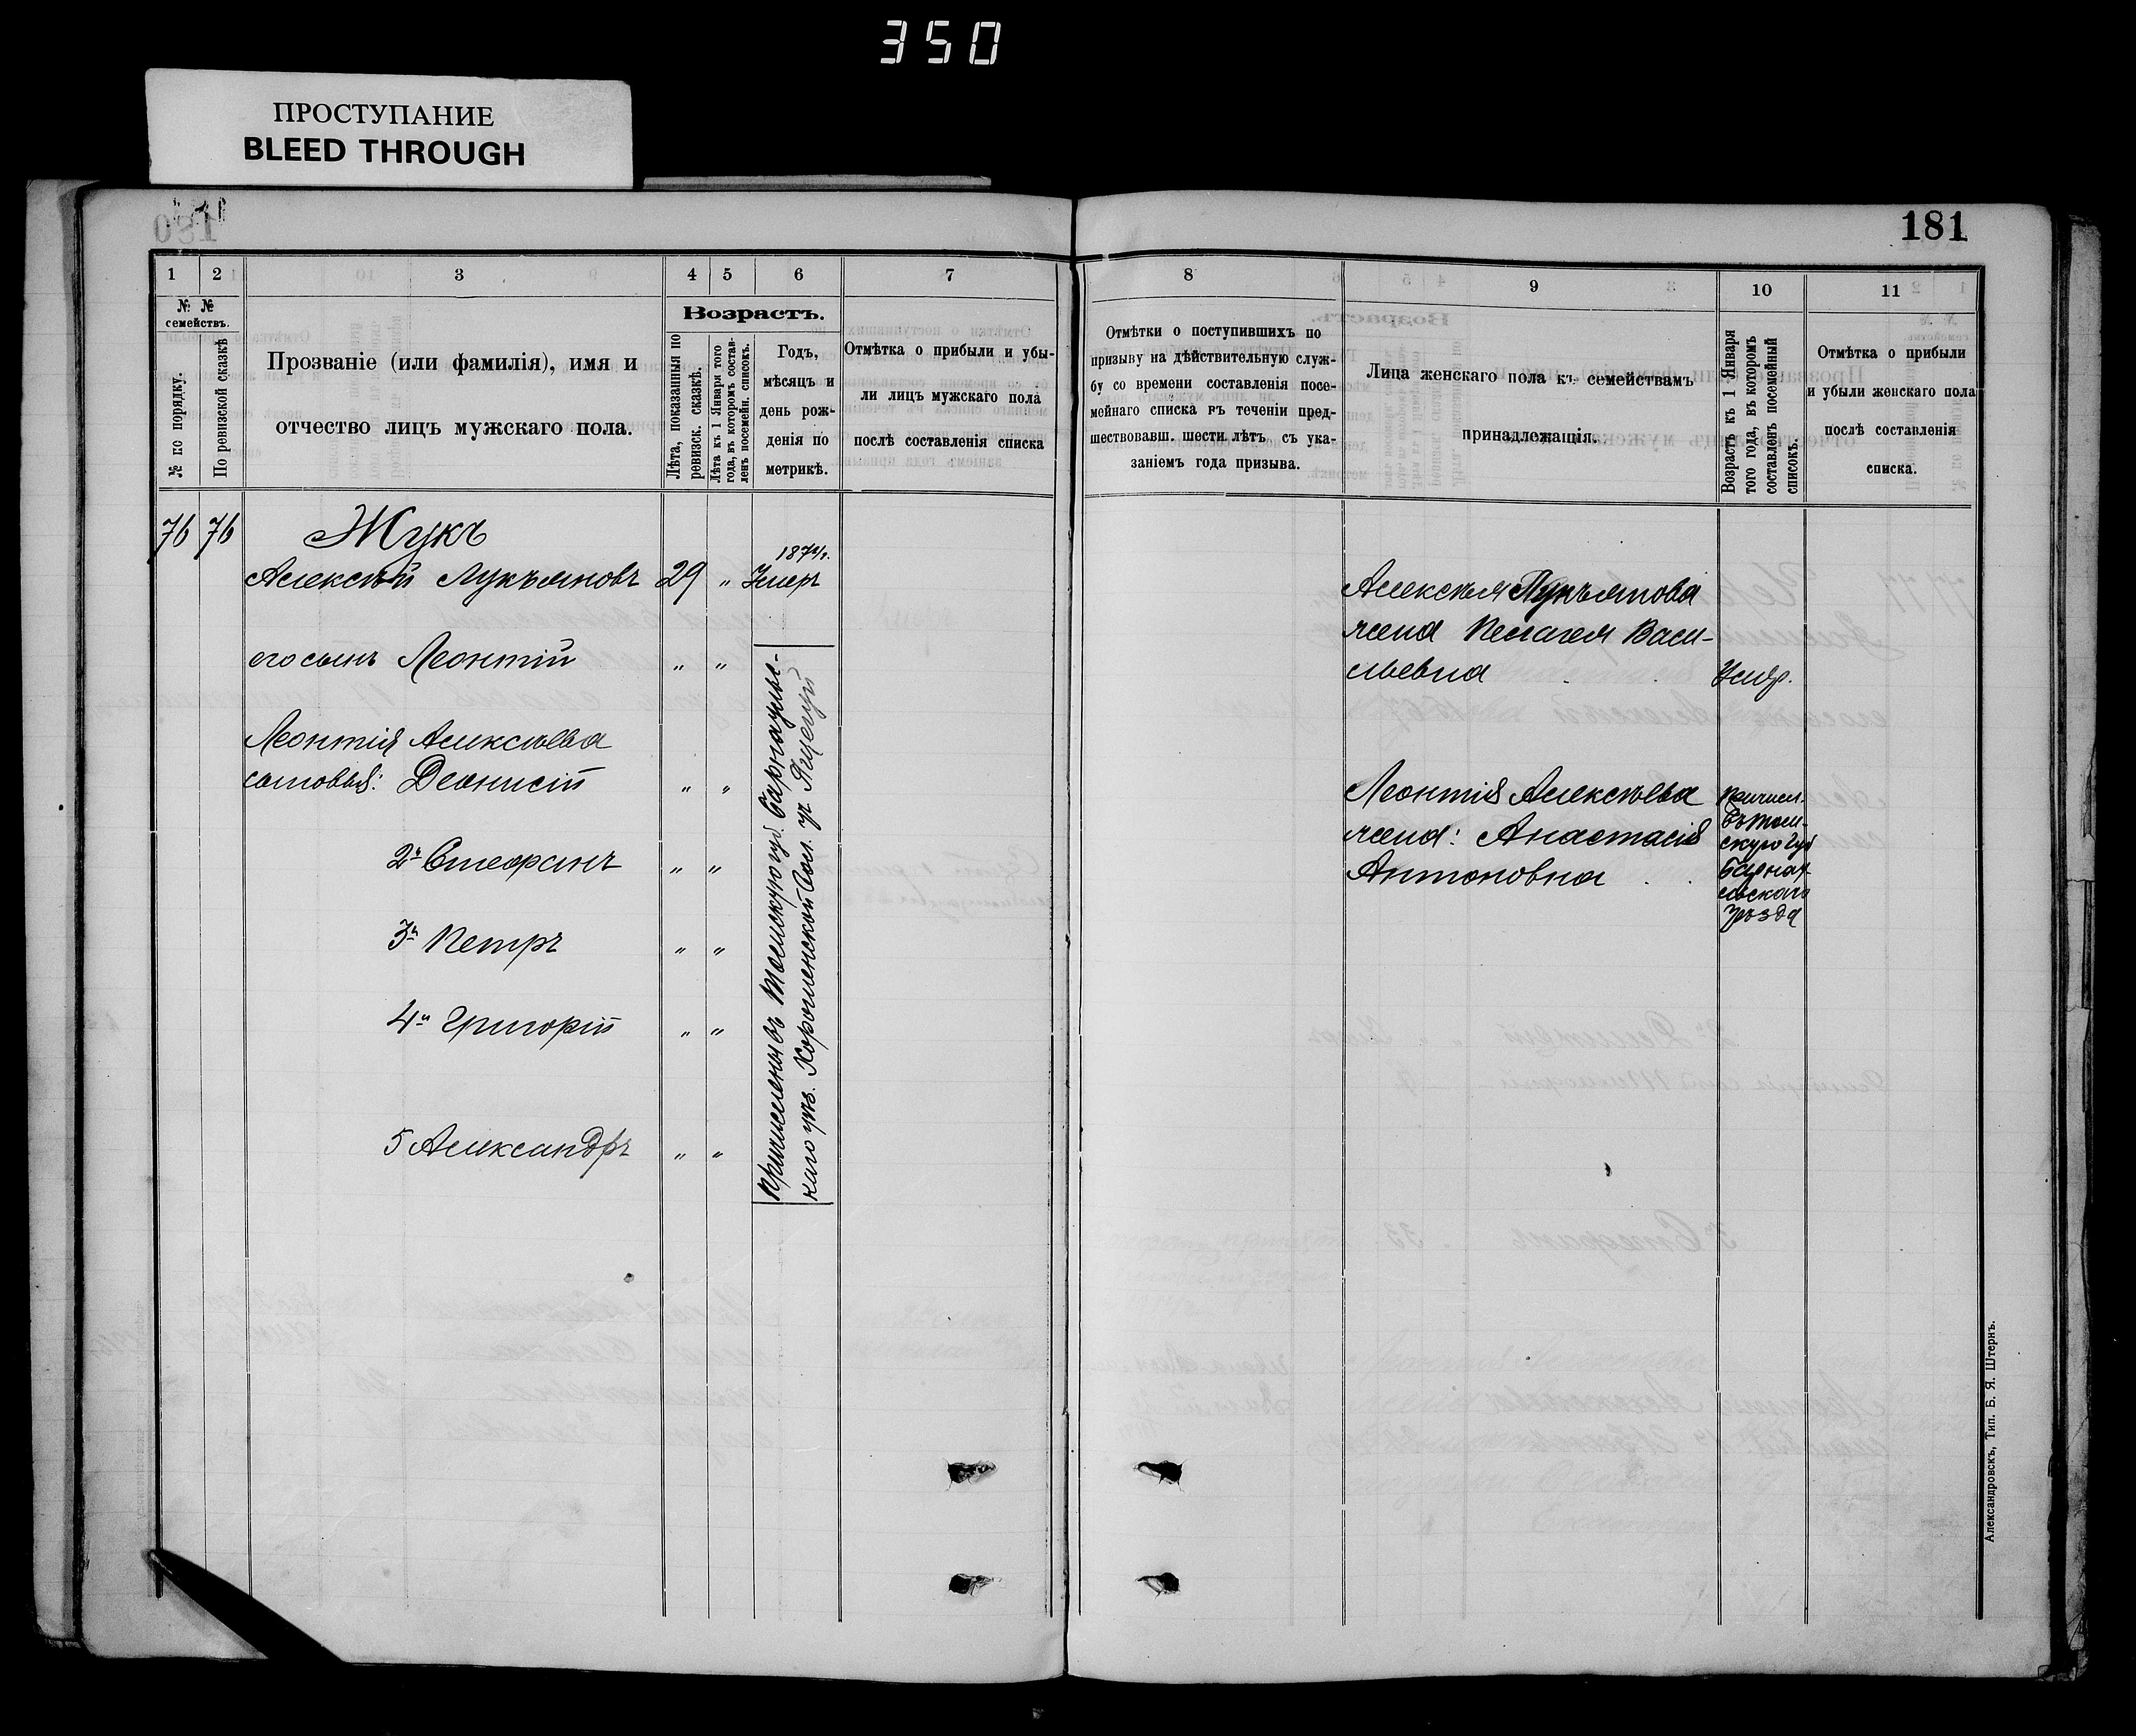 350
ПРОСТУПАНИЕ
BLEED THROUGH
181
1 2 3 4 5 6 7
№ №
семействъ.
№ по порядку.
По ревизской сказкѣ
Прозваніе (или фамилія), имя и
отчество лицъ мужскаго пола.
Возрастъ.
Лѣта, показанныя по
ревизск. сказкѣ.
Лѣта къ 1 Января того
года, въ которомъ состав-
ленъ посемейн. списокъ.
Годъ,
мѣсяцъ и
день рож-
денія по
метрикѣ.
Отмѣтка о прибыли и убы-
ли лицъ мужскаго пола
послѣ составленія списка
76 76 Жукъ
187 г.
Алексѣй Лукьяновъ 29 " Умеръ
его сынъ Леонтій " "
Леонтія Алексѣева
сыновья: Деонисій " "
2й Стефанъ " "
3й Петръ " "
4й Григорій " "
5 Александръ " "
Причислены въ Томскую губ. Барнаульс-
каго уѣз.
8 9 10 11
Отмѣтки о поступившихъ по
призыву на дѣйствительную служ-
бу со времени составленія посе-
мейнаго списка въ теченіи пред-
шествовавш. шести лѣтъ съ ука-
заніемъ года призыва.
Лица женскаго пола къ семействамъ
принадлежащія.
Возрастъ къ 1 Января
того года, въ которомъ
составленъ посемейный
списокъ.
Отмѣтка о прибыли
и убыли женскаго пола
послѣ составленія
списка.
Алексѣя Лукьянова
жена Пелагея Васи-
льевна Умер.
Леонтія Алексѣева
жена: Анастасія
Антоновна
Причисл.
въ Том-
скую губ
Барнау-
льскаго
уѣзда
Александровскъ, Тип. Б. Я. Штернъ.